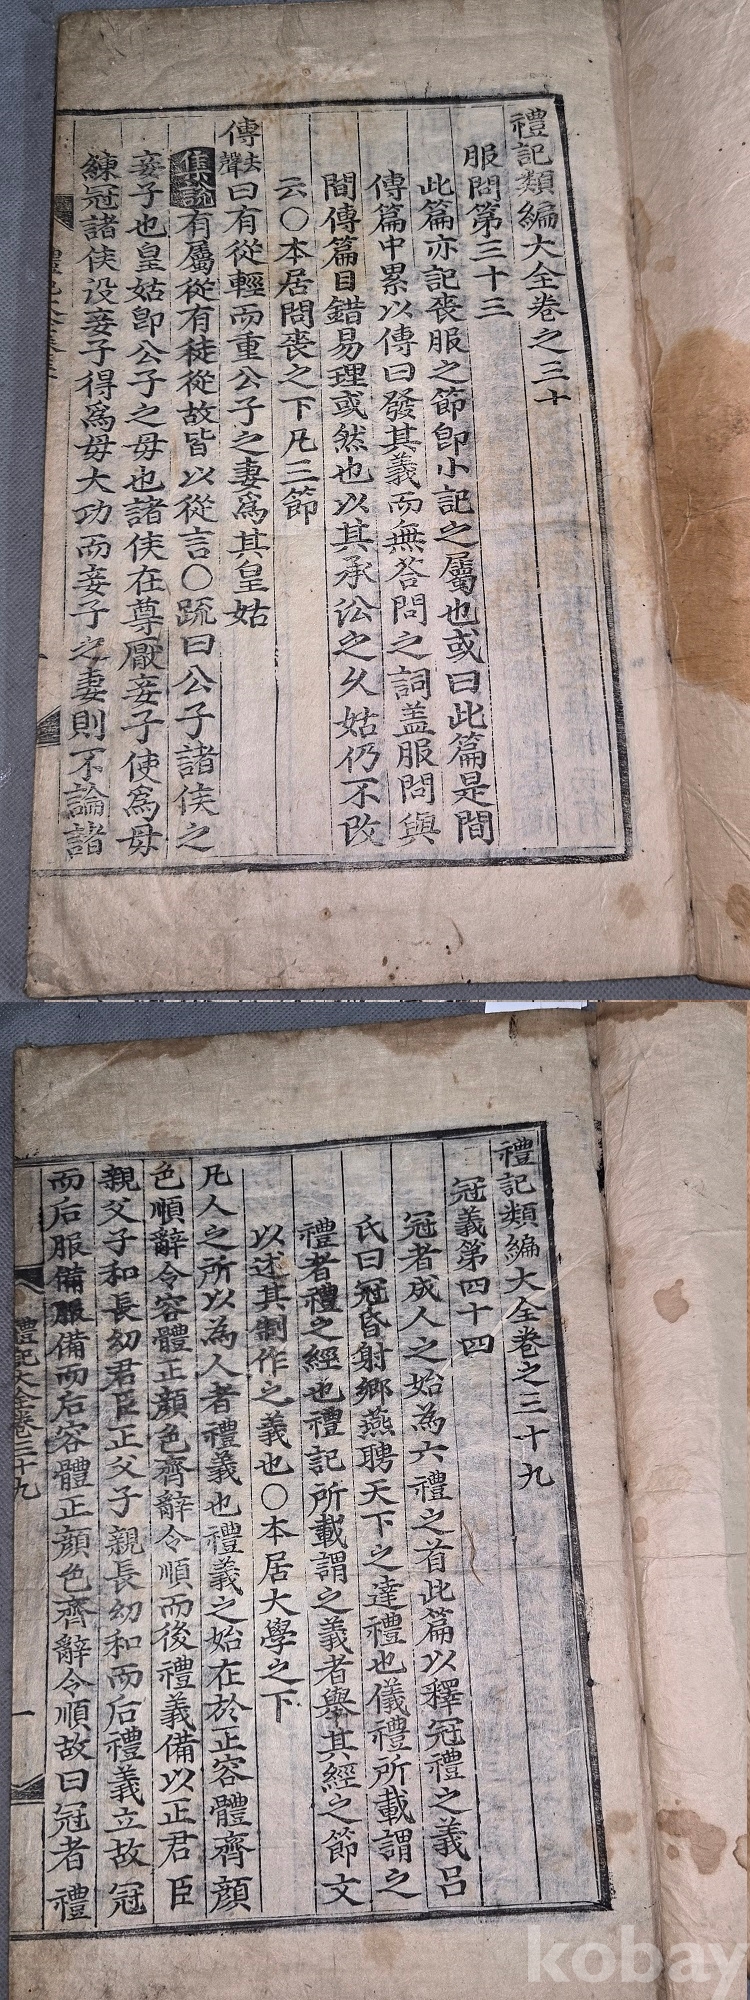 禮記類編大全卷之三十
服問第三十三
此篇亦記喪服之節卽小記之屬也或曰此篇是間
傳篇中累以傳曰發其義而無答問之詞盖服問與
間傳篇目錯易理或然也以其承訟之久姑仍不改
云〇本居問喪之下凡三節
傳去聲曰有從輕而重公子之妻爲其皇姑
集說有屬從有徒從故皆以從言〇疏曰公子諸侯之
妾子也皇姑卽公子之母也諸侯在尊厭妾子使爲母
練冠諸侯沒妾子得爲母大功而妾子之妻則不論諸
禮記類編大全卷之三十九
冠義第四十四
冠者成人之始為六禮之首此篇以釋冠禮之義呂
氏曰冠昏射鄉燕聘天下之達禮也儀禮所載謂之
禮者禮之經也禮記所載謂之義者舉其經之節文
以述其制作之義也〇本居大學之下
凡人之所以為人者禮義也禮義之始在於正容體齊顔
色順辭令容體正顔色齊辭令順而後禮義備以正君臣
親父子和長幼君臣正父子親長幼和而后禮義立故冠
而后服備服備而后容體正顔色齊辭令順故曰冠者禮
禮記大全卷三十九
一
kobay